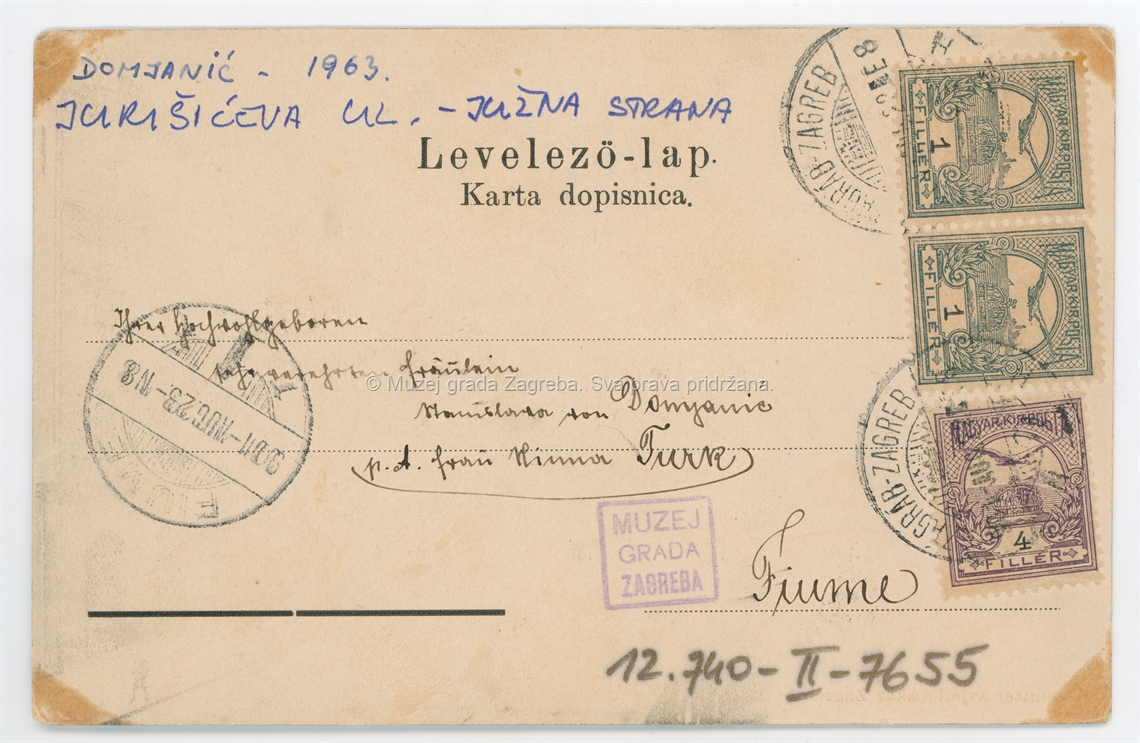 DOMJANIĆ - 1963.
JURIŠIĆEVA UL. - JUŽNA STRANA
Levelező-lap.
Karta dopisnica.
ZÁGRÁB-ZAGREB
MAGYAR KIR. POSTA
1
FILLÉR
MAGYAR KIR. POSTA
1
FILLÉR
ZÁGRÁB-ZAGREB
MAGYAR KIR. POSTA
4
FILLÉR
Ihrer Hochwohlgeboren
sehr verehrten Fräulein
© Muzej grada Zagreba. Sva prava pridržana.
Stanislava von Domjanic
p. A. Frau Minna Turk
FIUME
911-AUG.23-N8
MUZEJ
GRADA
ZAGREBA
Fiume
12.740-II-7655